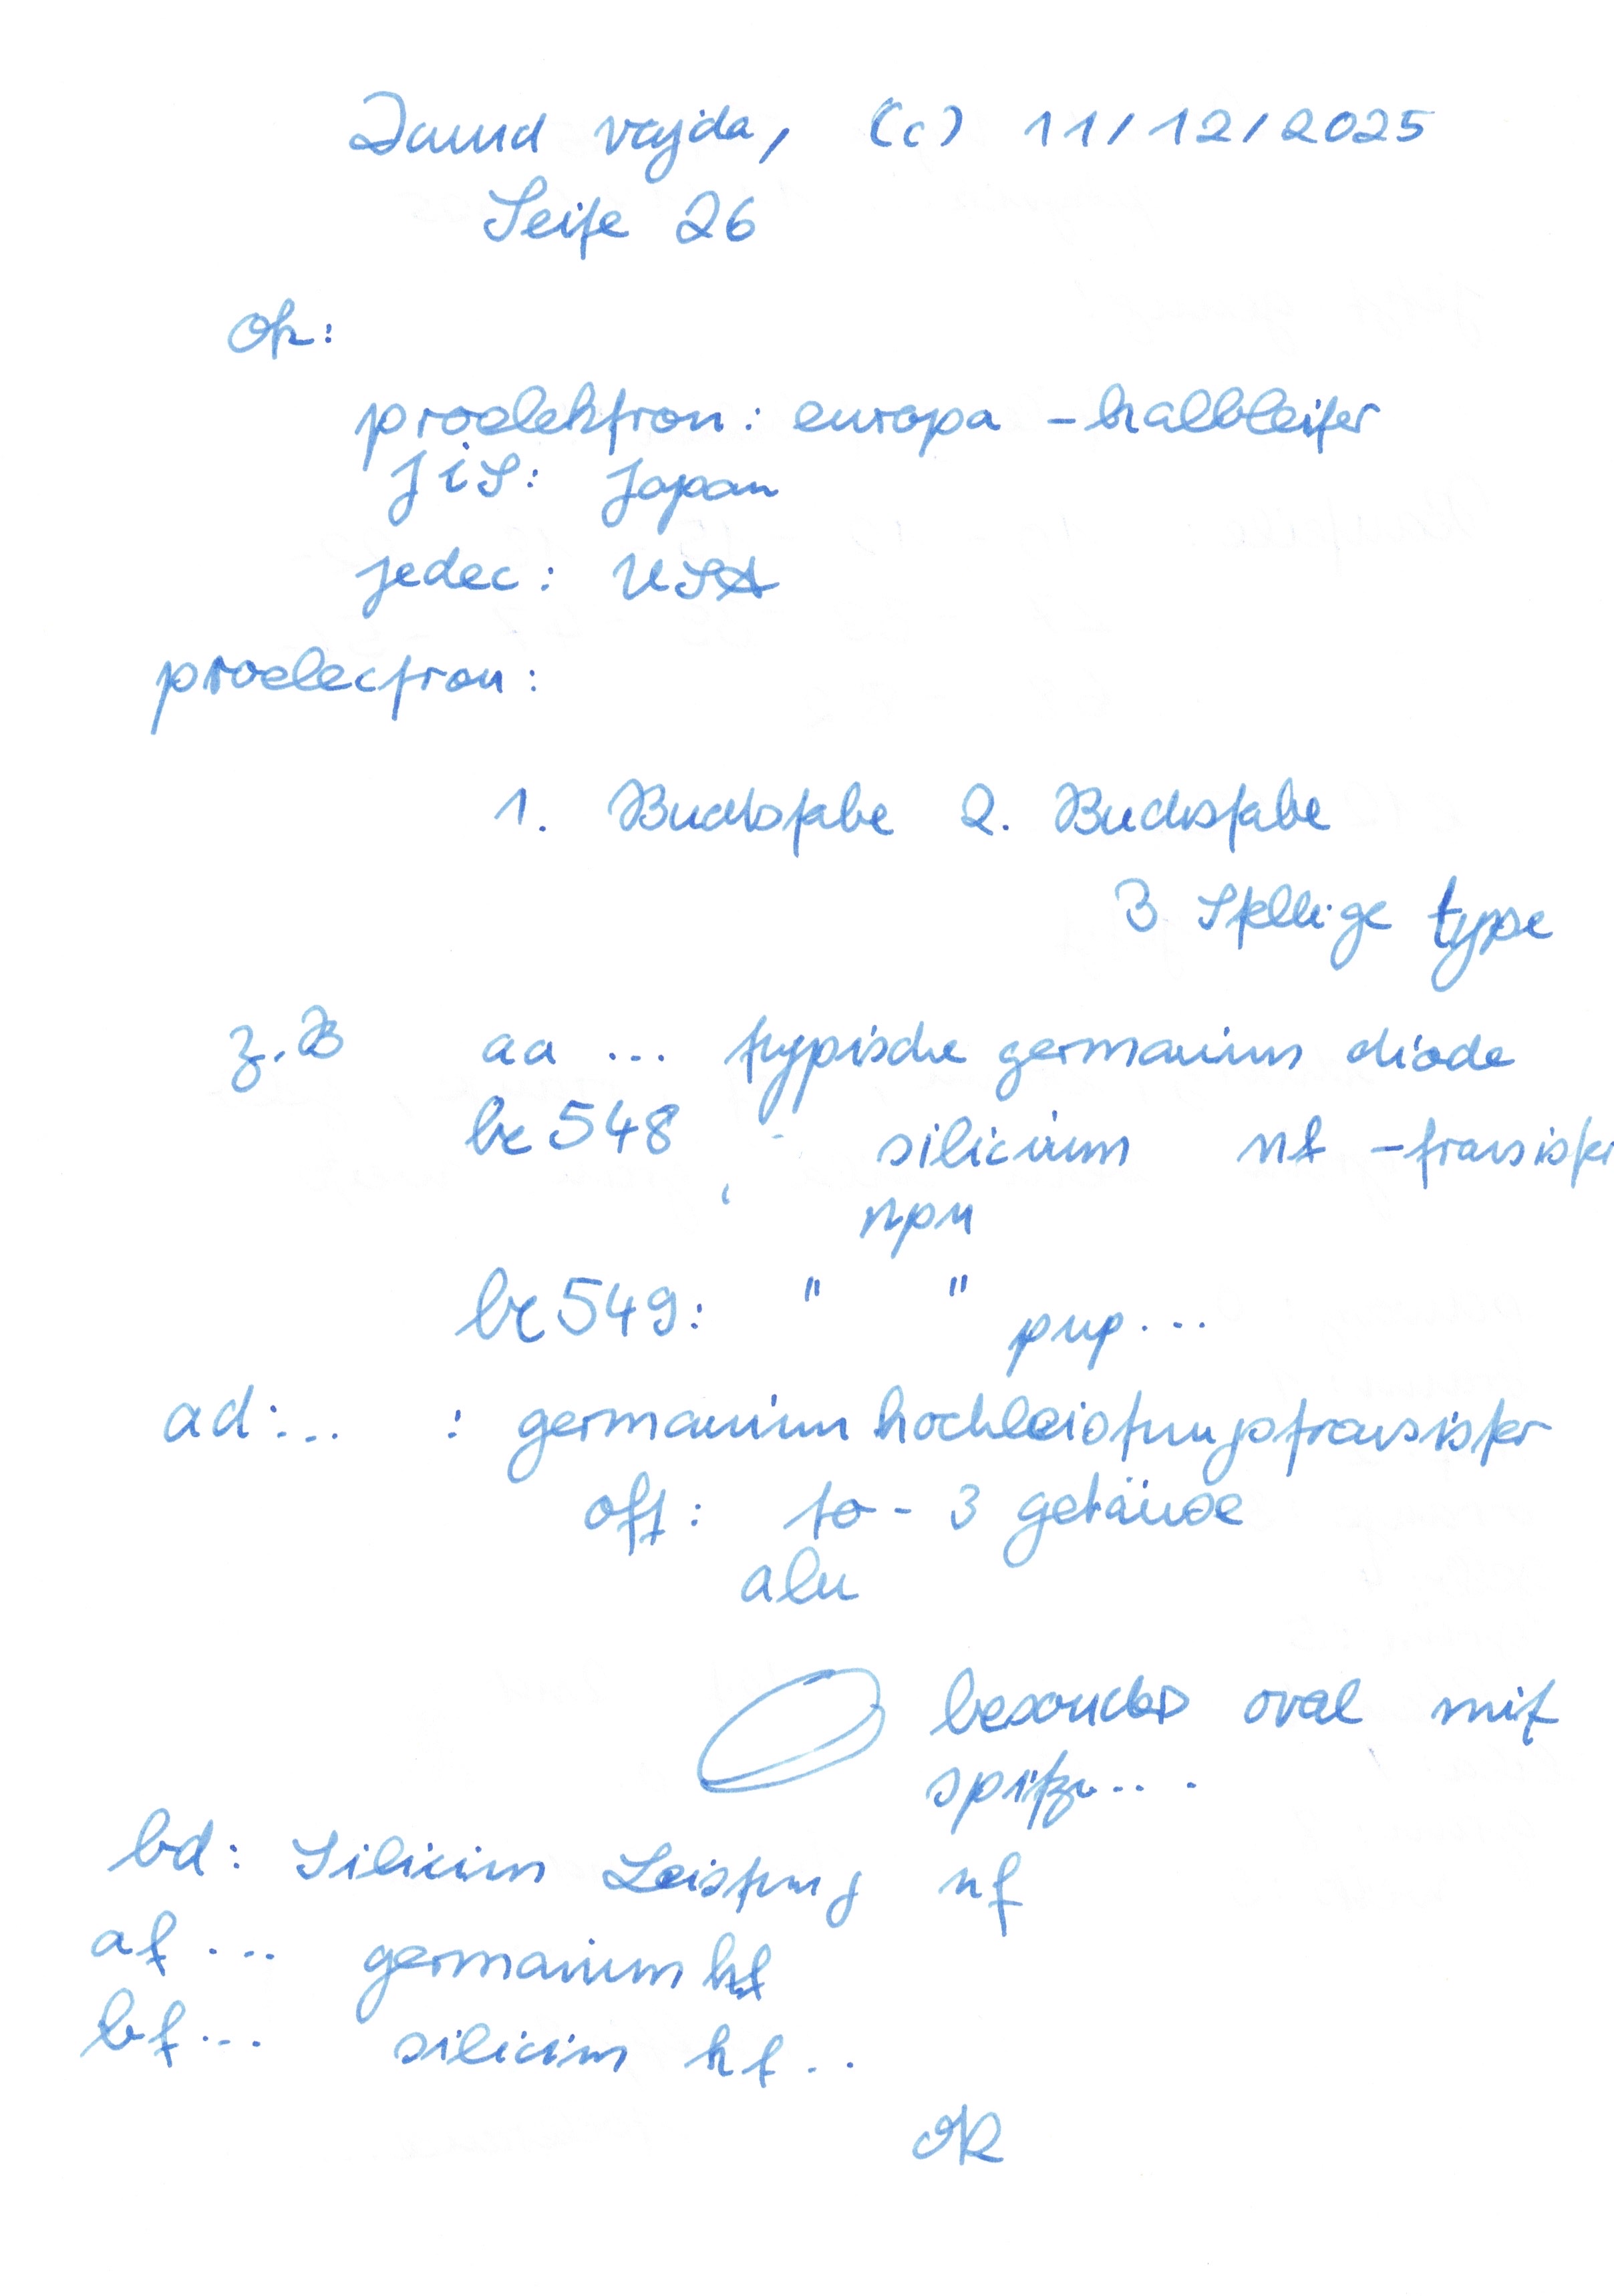 David Vajda, (c) 11/12/2025
Seite 26
ok:
proelektron: europa - halbleiter
JiS: Japan
jedec: USA
proelectron:
1. Buchstabe 2. Buchstabe
3 Stellige type
z.B aa ... typische germanium diode
bc548 silicium nf - transistor
npn
bc549: " " pnp...
ad:... : germanium hochleistungstransistor
oft: to-3 gehäuse
alu
besonders oval mit
spitzen...
bd: Silicium Leistung nf
af ... germanium hf
bf... silicium hf..
ok